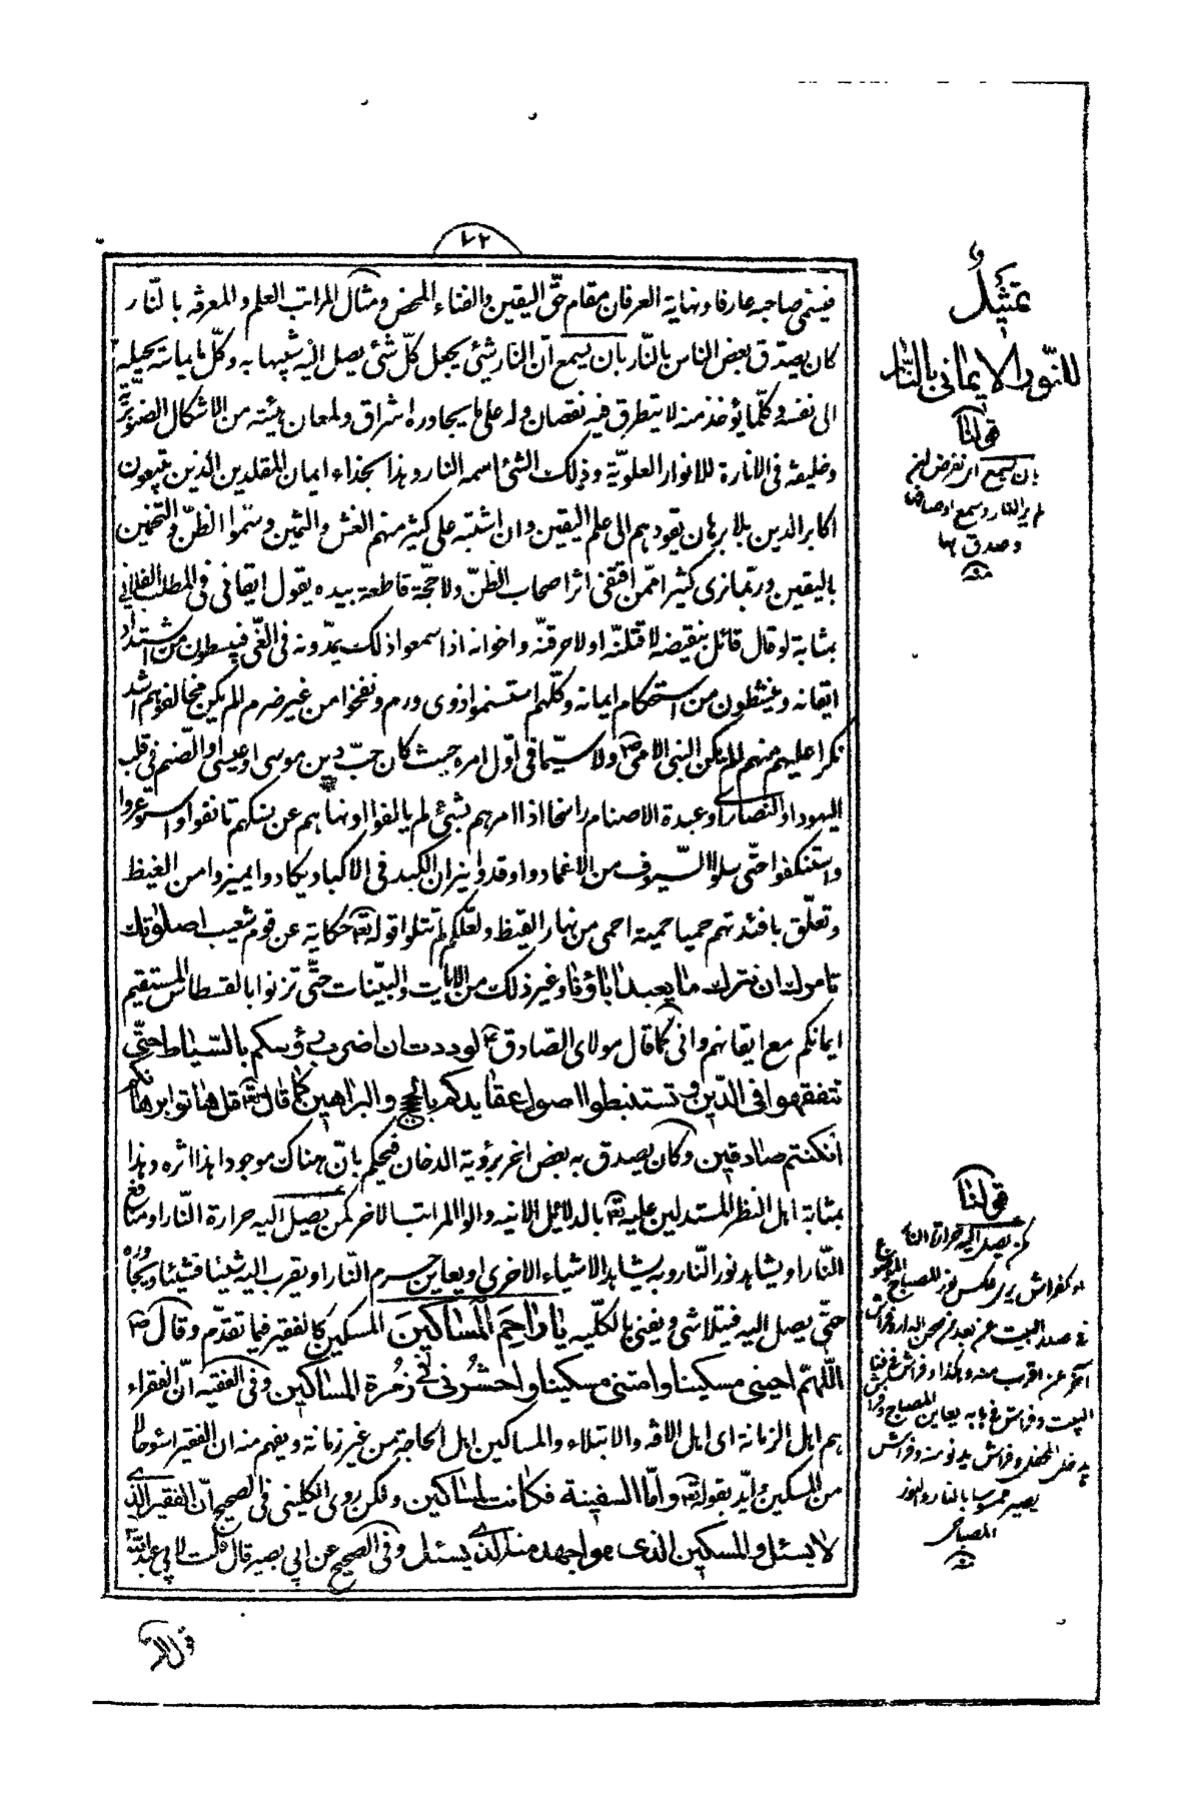 ٧٢
فيسمى صاحبه عارفا ونهاية العرفان مقام حق اليقين والفناء المحض ومثال المراتب العلم والمعرفة بالنّار
كان يصدّق بعض الناس بالنّار بان يسمع انّ النار شئ يجعل كلّ شئ يصل اليه شبيها به وكلّ ما يماسّه يحيله
الى نفسه وكلّما يؤخذ منه لا يتطرق فيه نقصان وله على ما يجاوره اشراق ولمعان هيئته من الاشكال الصنوبريّة
وخليفة فى الانارة للانوار العلويّة وذلك الشئ اسمه النار وهذا بحذاء ايمان المقلدين الذين يتبعون
اكابر الدين بلا برهان يقودهم الى علم اليقين وان اشتبه على كثير منهم الغش والثمين وسمّوا الظنّ والتخمين
باليقين وربما نرى كثيرا ممّن اقتفى اثر اصحاب الظنّ ولا حجّة قاطعة بيده يقول ايقانى فى المطلب الفلانى
بمثابة لو قال قائل بنقيضه لاقتلنّه او لاحرقنّه واخوانه اذا سمعوا ذلك يمدّونه فى الغىّ فيسطون من اشتداد
ايقانه وينشطون من استحكام ايمانه وكلّهم استسمنوا ذوى ورم ونفخوا من غير ضرم الم يكن مخالفوهم اشد
نكرا عليهم منهم الم يكن النبى الامى ص ولا سيّما فى اوّل امره حيث كان حبّ دين موسى او عيسى او الصّنم فى قلب
اليهود او النصارى او عبدة الاصنام راسخا اذا امرهم بشئ لم يالفوا او نهاهم عن نسكهم تانفوا واستوعروا
واستنكفوا حتّى سلّوا السّيوف من الاغماد واوقدوا نيران الكبد فى الاكباد يكادوا يميزوا من الغيظ
وتعلّق بافئدتهم حميا حمية احمى من نهار القيظ ولعلّكم لم تتلوا قوله تعالى حكاية عن قوم شعيب اصلوتك
تامرك ان نترك ما يعبد اباؤنا وغير ذلك من الايات والبيّنات حتّى تزنوا بالقسطاس المستقيم
ايمانكم مع ايقانهم وانى كما قال مولاى الصّادق ع لوددت ان اضرب رؤسكم بالسّياط حتّى
تتفقهوا فى الدّين وتستنبطوا اصول عقايدكم بالحجج والبراهين كما قال تعالى قل هاتوا برهانكم
ان كنتم صادقين وكان يصدق به بعض اخر برؤية الدخان فيحكم بانّ هناك موجودا هذا اثره وهذا
بمثابة اهل النظر المستدلين عليه تعالى بالدلائل الانيه والوا المراتب الاخر كمن يصل اليه حرارة النّار او منافع
النّار او يشاهد نور النّار وبه يشاهد الاشياء الاخرى او يعاين جرم النّار او يقرب اليه شيئا فشيئا ويجاوره
حتّى يصل اليه فيتلاشى ويفنى بالكلّيه يا رَاحِمَ الْمَسَاكِينَ المسكين كالفقير فيما تقدّم وقال ص
اللّهمّ احينى مسكينا وامتنى مسكينا واحشُرنى فى زُمرة المساكين وفى الفقيه انّ الفقراء
هم اهل الزمانة اى اهل الافة والابتلاء والمساكين اهل الحاجة من غير زمانة ويفهم منه ان الفقير اسُوء حالا
من المسكين وايّد بقوله تعالى وامّا السفينة فكانت لمساكين ولكن روى الكلينى فى الصحيح انّ الفقير الذى
لا يسئل والمسكين الذى هو اجهد منه الذى يسئل وفى الصحيح عن ابى بصير قال قلت لابى عبد اللّه
تمثيلٌ
للنّور الايمانى بالنّار
قولنا
بان يسمع اى نفرض انه
لم ير النار وسمع اوصافها
وصدق بها
منه
قولنا
كمن يصل اليه حرارة النار
او كفراش يرى عكس نور المصباح الموضوع
فى صدر البيت عن بعد فى صحن الدار وفراش
آخر عن اقرب منه وهكذا وفراش فى فناء
البيت وفراش فى بابه يعاين المصباح وفراش
يدخل المحفل وفراش يدنو منه وفراش
يصير ممسوسا بالنار والنور
المصباحى
منه